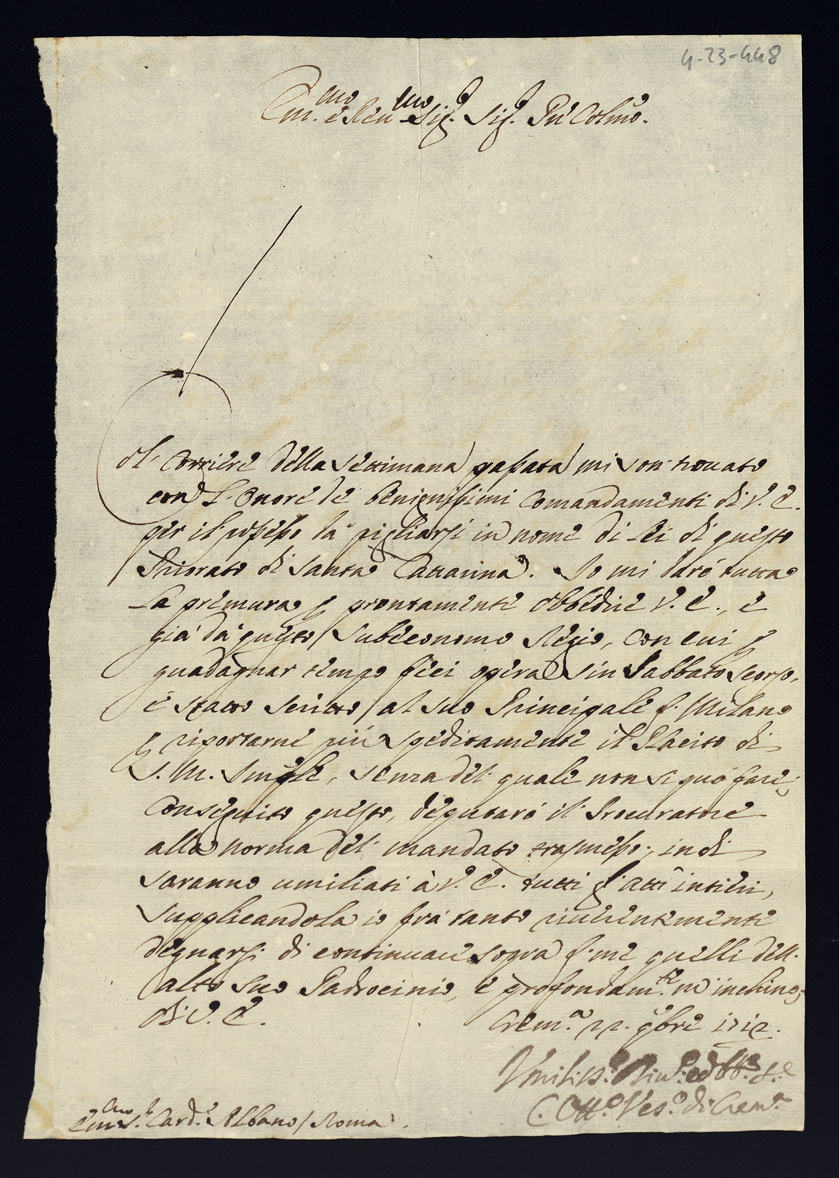 4-23-448
Em.mo e Reu.mo Sig.r Sig.r Pñ Colmo.
Col Corriere della settimana passata mi son trouato
con L'Onore de benignissimi Comandamenti di V. E.
per il possesso da pigliarsi in nome di Lei di questo
Priorato di Santa Cattarina. Io mi darò tutta
la premura p prontamente obbedire V. E., e
già da questo Subeconomo Regio, con cui p
guadagnar tempo feci opera sin Sabbato scorso,
è stato scritto al suo Principale p. Milano
p riportarne più speditamente il Placito di
S. M., senza del quale non si può fare;
Conseguito questo, deputarò il Procuratore
alla norma del mandato trasmesso, indi
saranno umiliati à V. E. tutti gl'atti intieri,
supplicandola io frà tanto riuerentemente
degnarsi di continuare sopra di me quelli dell'
alto suo Padrocinio, e profondam.te m'inchino.
Di V. E. Crem.a 22. 9bre 1712.
Vmiliss.o Diu.o ed Obb.o S.e
C. Ott.o Ves.o di Crem.a
Em.mo S.r Card.e Albano / Roma.